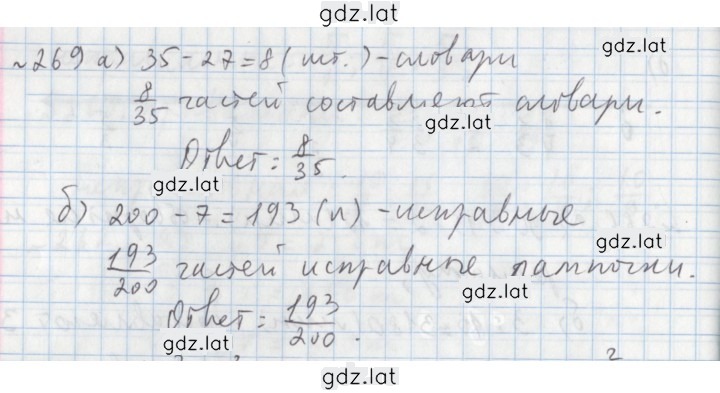 gdz.lat
№269 а) 35 - 27 = 8 (шт.) - словари
gdz.lat
8/35 частей составляют словари.
gdz.lat
Ответ: 8/35.
gdz.lat
б) 200 - 7 = 193 (л) - исправные
gdz.lat
193/200 частей исправные лампочки.
gdz.lat
Ответ: 193/200.
gdz.lat
gdz.lat